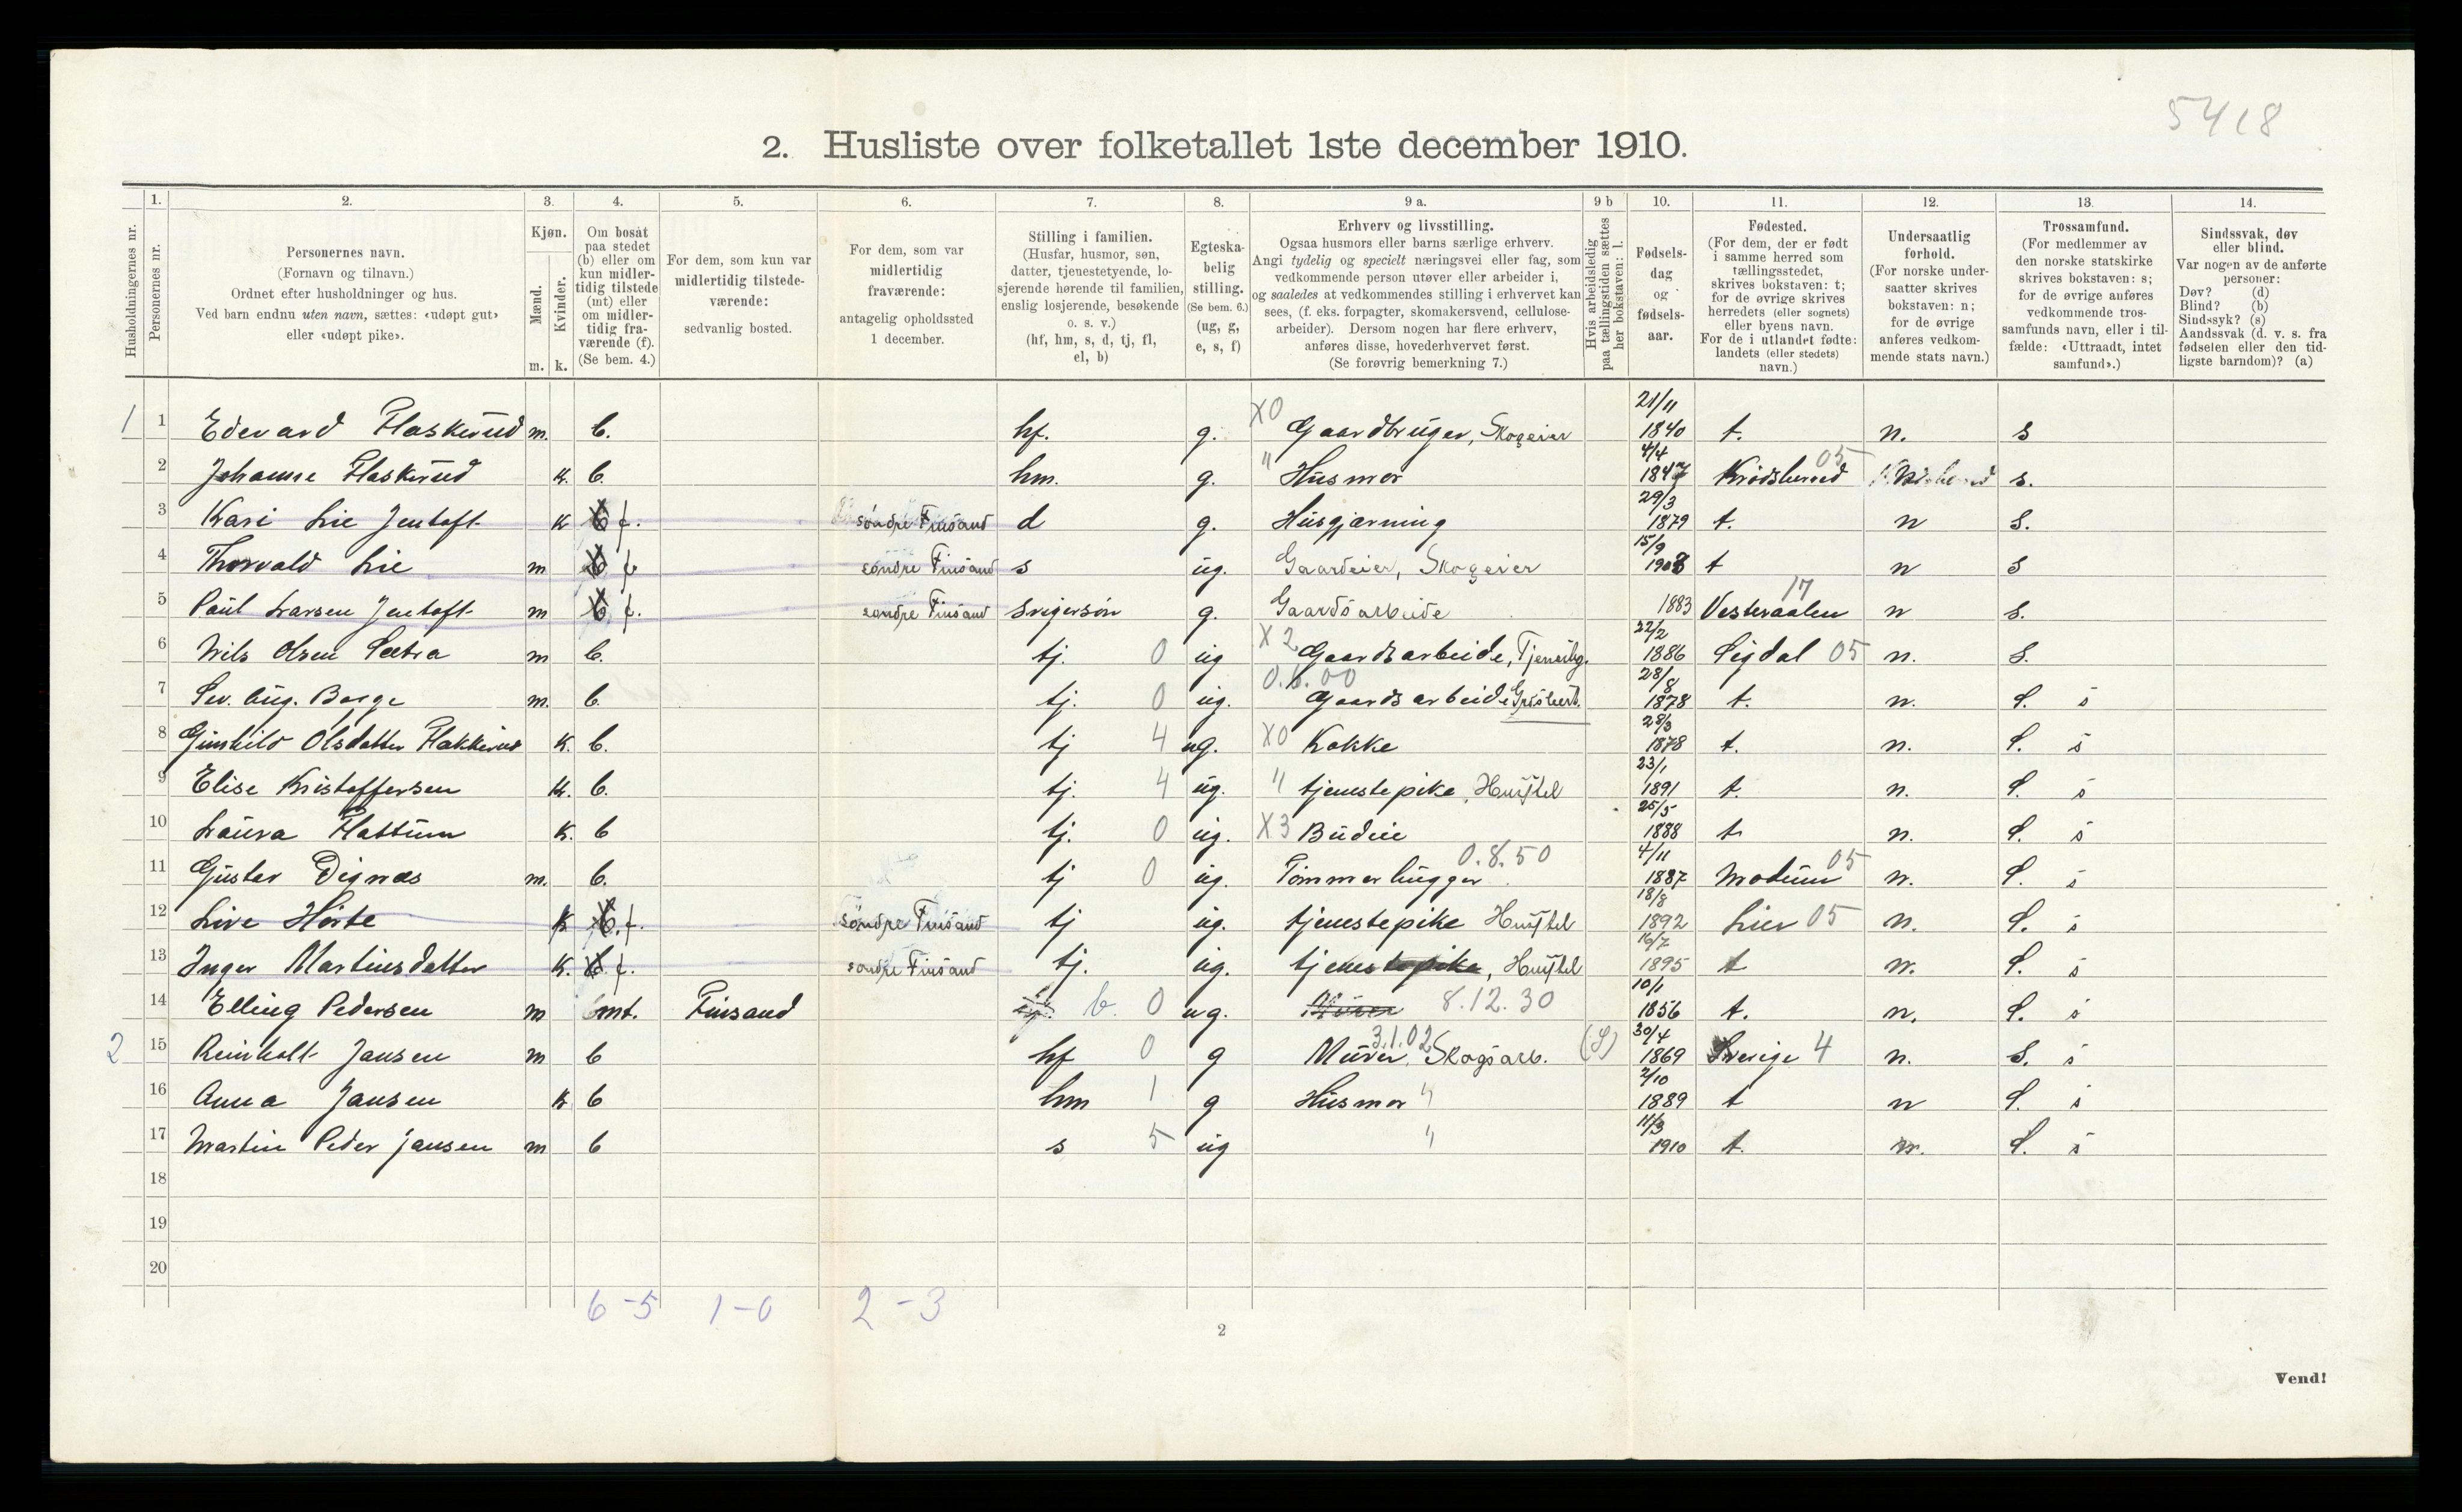 5418
2. Husliste over folketallet 1ste december 1910.
Husholdningernes nr.
1.
Personernes nr.
2.
Personernes navn.
(Fornavn og tilnavn.)
Ordnet efter husholdninger og hus.
Ved barn endnu uten navn, sættes: «udøpt gut»
eller «udøpt pike».
3.
Kjøn.
Mænd.
Kvinder.
m. k.
4.
Om bosat
paa stedet
(b) eller om
kun midler-
tidig tilstede
(mt) eller
om midler-
tidig fra-
værende (f).
(Se bem. 4.)
5.
For dem, som kun var
midlertidig tilstede-
værende:
sedvanlig bosted.
6.
For dem, som var
midlertidig
fraværende:
antagelig opholdssted
1 december.
7.
Stilling i familien.
(Husfar, husmor, søn,
datter, tjenestetyende, lo-
sjerende hørende til familien,
enslig losjerende, besøkende
o. s. v.)
(hf, hm, s, d, tj, fl,
el, b)
8.
Egteska-
belig
stilling.
(Se bem. 6.)
(ug, g,
e, s, f)
9 a.
Erhverv og livsstilling.
Ogsaa husmors eller barns særlige erhverv.
Angi tydelig og specielt næringsvei eller fag, som
vedkommende person utøver eller arbeider i,
og saaledes at vedkommendes stilling i erhvervet kan
sees, (f. eks. forpagter, skomakersvend, cellulose-
arbeider). Dersom nogen har flere erhverv,
anføres disse, hovederhvervet først.
(Se forøvrig bemerkning 7.)
9 b
Hvis arbeidsledig
paa tællingstiden sættes
her bokstaven: l.
10.
Fødsels-
dag
og
fødsels-
aar.
11.
Fødested.
(For dem, der er født
i samme herred som
tællingsstedet,
skrives bokstaven: t;
for de øvrige skrives
herredets (eller sognets)
eller byens navn.
For de i utlandet fødte:
landets (eller stedets)
navn.)
12.
Undersaatlig
forhold.
(For norske under-
saatter skrives
bokstaven: n;
for de øvrige
anføres vedkom-
mende stats navn.)
13.
Trossamfund.
(For medlemmer av
den norske statskirke
skrives bokstaven: s;
for de øvrige anføres
vedkommende tros-
samfunds navn, eller i til-
fælde: «Uttraadt, intet
samfund».)
14.
Sindssvak, døv
eller blind.
Var nogen av de anførte
personer:
Døv? (d)
Blind? (b)
Sindssyk? (s)
Aandssvak (d. v. s. fra
fødselen eller den tid-
ligste barndom)? (a)
1 1 Edevard Flaskerud m. b. hf. g. X0 Gaardbruger, Skogeier 21/11 1840 t. n. s
2 Johanne Flaskerud k. b. hm. g. " Husmor 4/4 1847 Krødsherred 05 s.
3 Kari Lie Jentoft k b f. søndre Finsand d g. Husgjærning 29/3 1879 t. n s.
4 Thorvald Lie m b f søndre Finsand s ug. Gaardeier, Skogeier 15/9 1908 t n s
5 Paul Larsen Jentoft m b. f. søndre Finsand svigersøn g. Gaardsarbeide 1883 Vesteraalen 17 n s.
6 Nils Olsen Sætra m b. tj. 0 ug X2 Gaardsarbeide, 22/2 1886 Sigdal 05 n. s.
7 Sev. Aug. Borge m. b. tj. 0 ug. 0.6.00 Gaardsarbeide 28/8 1878 t. n. S. s
8 Gunhild Olsdatter k. b. tj 4 ug. X0 Kokke 28/3 1878 t. n. S. s
9 Elise Kristoffersen k. b. tj. 4 ug. " tjenestepike, Husstel 23/1 1891 t. n. S. s
10 Laura Flattum k. b tj. 0 ug. X3 Budeie 25/5 1888 t n. S. s
11 Gustav Dignæs m. b. tj 0 ug. Tømmerhugger 0.8.50 4/11 1887 Modum 05 n. S. s
12 Live Hørte k b. f. søndre Finsand tj ug. tjenestepike Husstel 18/8 1892 Lier 05 n. S. s
13 Inger Martinsdatter k. b. f. søndre Finsand tj. ug. tjenestepike, Husstel 16/7 1895 t n. S. s
14 Elling Pedersen m mt. Finsand tj. b. 0 ug. Murer 8.12.30 10/1 1856 t. n. S. s
2 15 Reinholt Jansen m b hf 0 g Murer, Skogsarb. 3.1.02 (S) 30/4 1869 Sverige 4 n. S. s
16 Anna Jansen k b hm 1 g Husmor " 2/10 1889 t n S. s
17 Martin Peder Jansen m b s 5 ug " 11/3 1910 t. n. S. s
18
19
20
6-5 1-0 2-3
2
Vend!